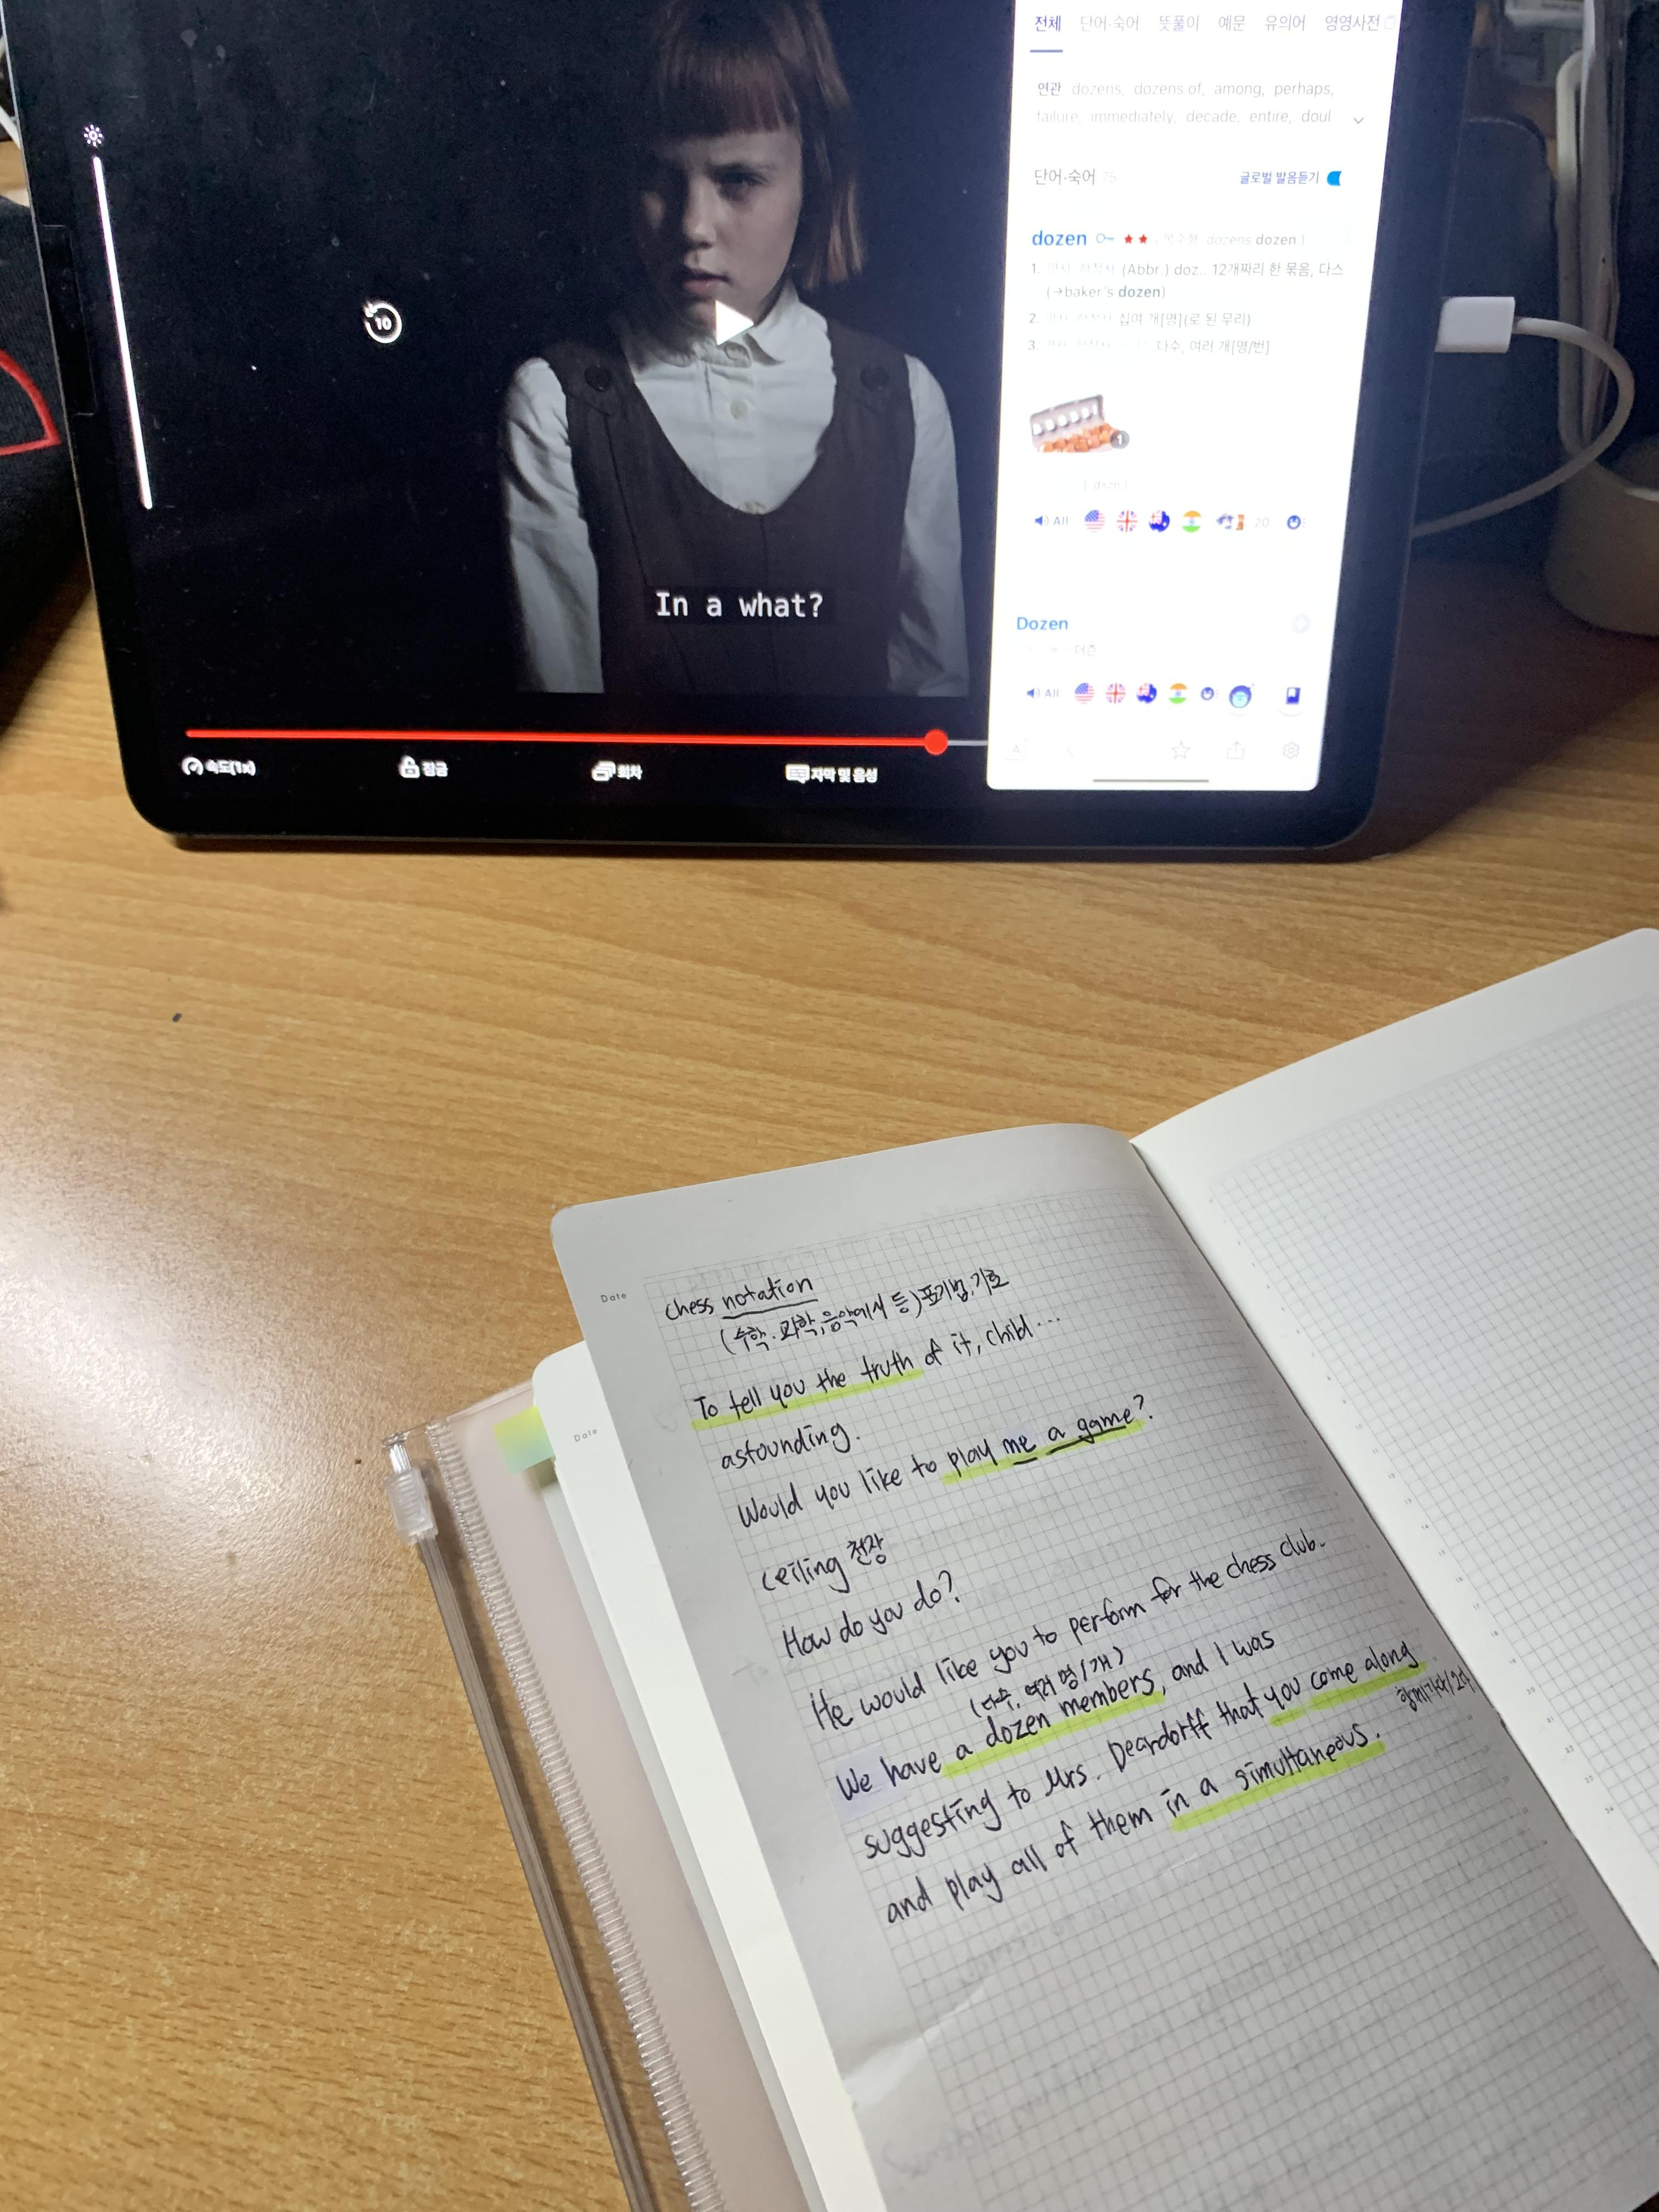 전체 단어·숙어 뜻풀이 예문 유의어 영영사전
연관 dozens, dozens of, among, perhaps,
failure, immediately, decade, entire, doul
단어·숙어 75
글로벌 발음듣기
dozen ★★ 복수형 dozens dozen )
1. (Abbr.) doz., 12개짜리 한 묶음, 다스
(→baker's dozen)
2. 십여 개[명](로 된 무리)
3. 다수, 여러 개[명/번]
1
All 20
Dozen
더즌
All
10
In a what?
속도(1x) 잠금 회차 자막 및 음성
Date
chess notation
(수학. 과학, 음악에서 등) 표기법, 기호
To tell you the truth of it, child...
astounding.
Would you like to play me a game?
ceiling 천장
How do you do?
He would like you to perform for the chess club.
(다수, 여러 명/개)
We have a dozen members, and I was
suggesting to Mrs. Deardorff that you come along
함께가다/오다
and play all of them in a simultaneous.
Date